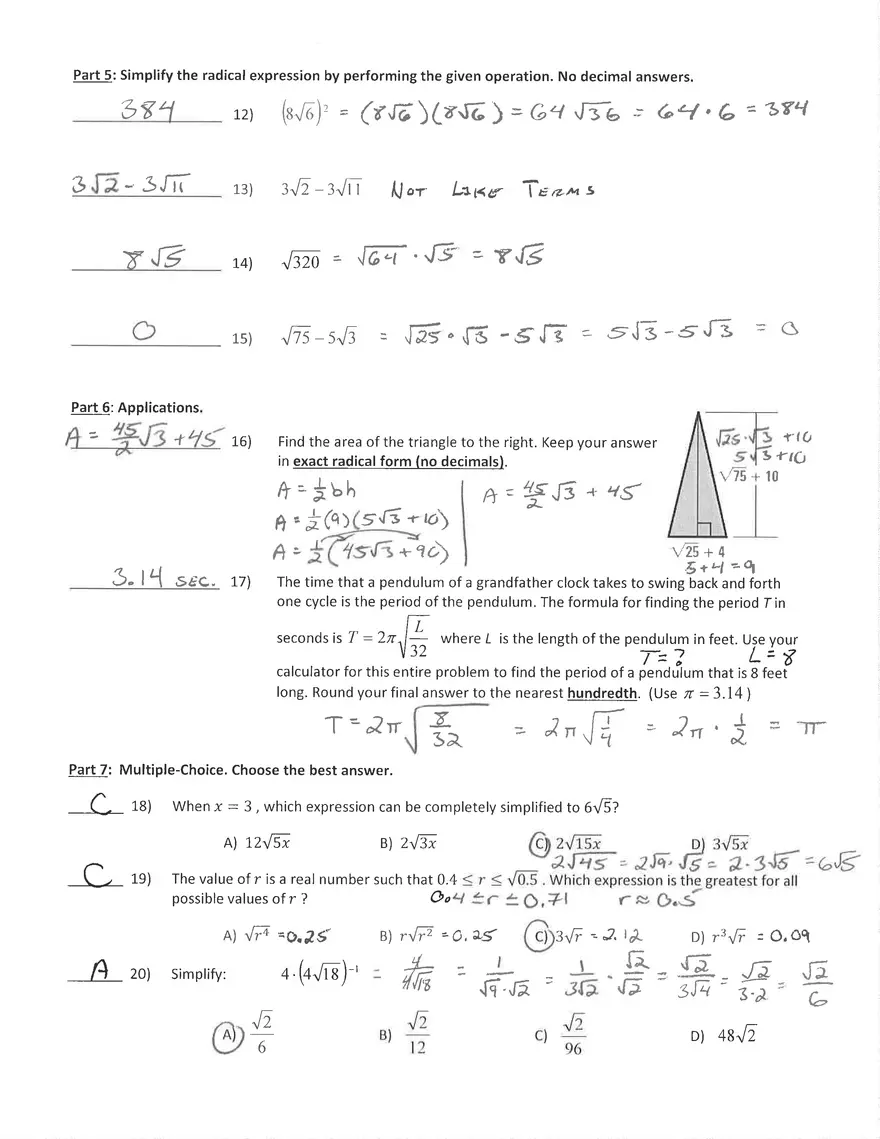 Part 5: Simplify the radical expression by performing the given operation. No decimal answers.
384 12) (8√6)² = (8√6)(8√6) = 64√36 = 64·6 = 384
3√2 - 3√11 13) 3√2 – 3√11 NOT LIKE TERMS
8√5 14) √320 = √64 · √5 = 8√5
0 15) √75 – 5√3 = √25 · √3 - 5√3 = 5√3 - 5√3 = 0
Part 6: Applications.
A = 45/2 √3 + 45 16) Find the area of the triangle to the right. Keep your answer
in exact radical form (no decimals).
√25·√3 +10
5√3+10
√75 + 10
A = ½bh
A = ½(9)(5√3 + 10)
A = ½(45√3 + 90)
A = 45/2 √3 + 45
√25 + 4
5+4 = 9
3.14 SEC. 17) The time that a pendulum of a grandfather clock takes to swing back and forth
one cycle is the period of the pendulum. The formula for finding the period T in
seconds is T = 2π√(L/32) where L is the length of the pendulum in feet. Use your
T=? L=8
calculator for this entire problem to find the period of a pendulum that is 8 feet
long. Round your final answer to the nearest hundredth. (Use π = 3.14)
T = 2π√(8/32) = 2π√(1/4) = 2π · ½ = π
Part 7: Multiple-Choice. Choose the best answer.
C 18) When x = 3 , which expression can be completely simplified to 6√5?
A) 12√5x B) 2√3x C) 2√15x D) 3√5x
2√45 = 2√9·√5 = 2·3√5 = 6√5
C 19) The value of r is a real number such that 0.4 ≤ r ≤ √0.5 . Which expression is the greatest for all
possible values of r ? 0.4 ≤ r ≤ 0.71 r ≈ 0.5
A) √r⁴ =0.25 B) r√r² =0.25 C) 3√r = 2.12 D) r³√r = 0.09
A 20) Simplify: 4·(4√18)⁻¹ = 4/4√18 = 1/√9·√2 = 1/3√2 · √2/√2 = √2/3√4 = √2/3·2 = √2/6
A) √2/6 B) √2/12 C) √2/96 D) 48√2